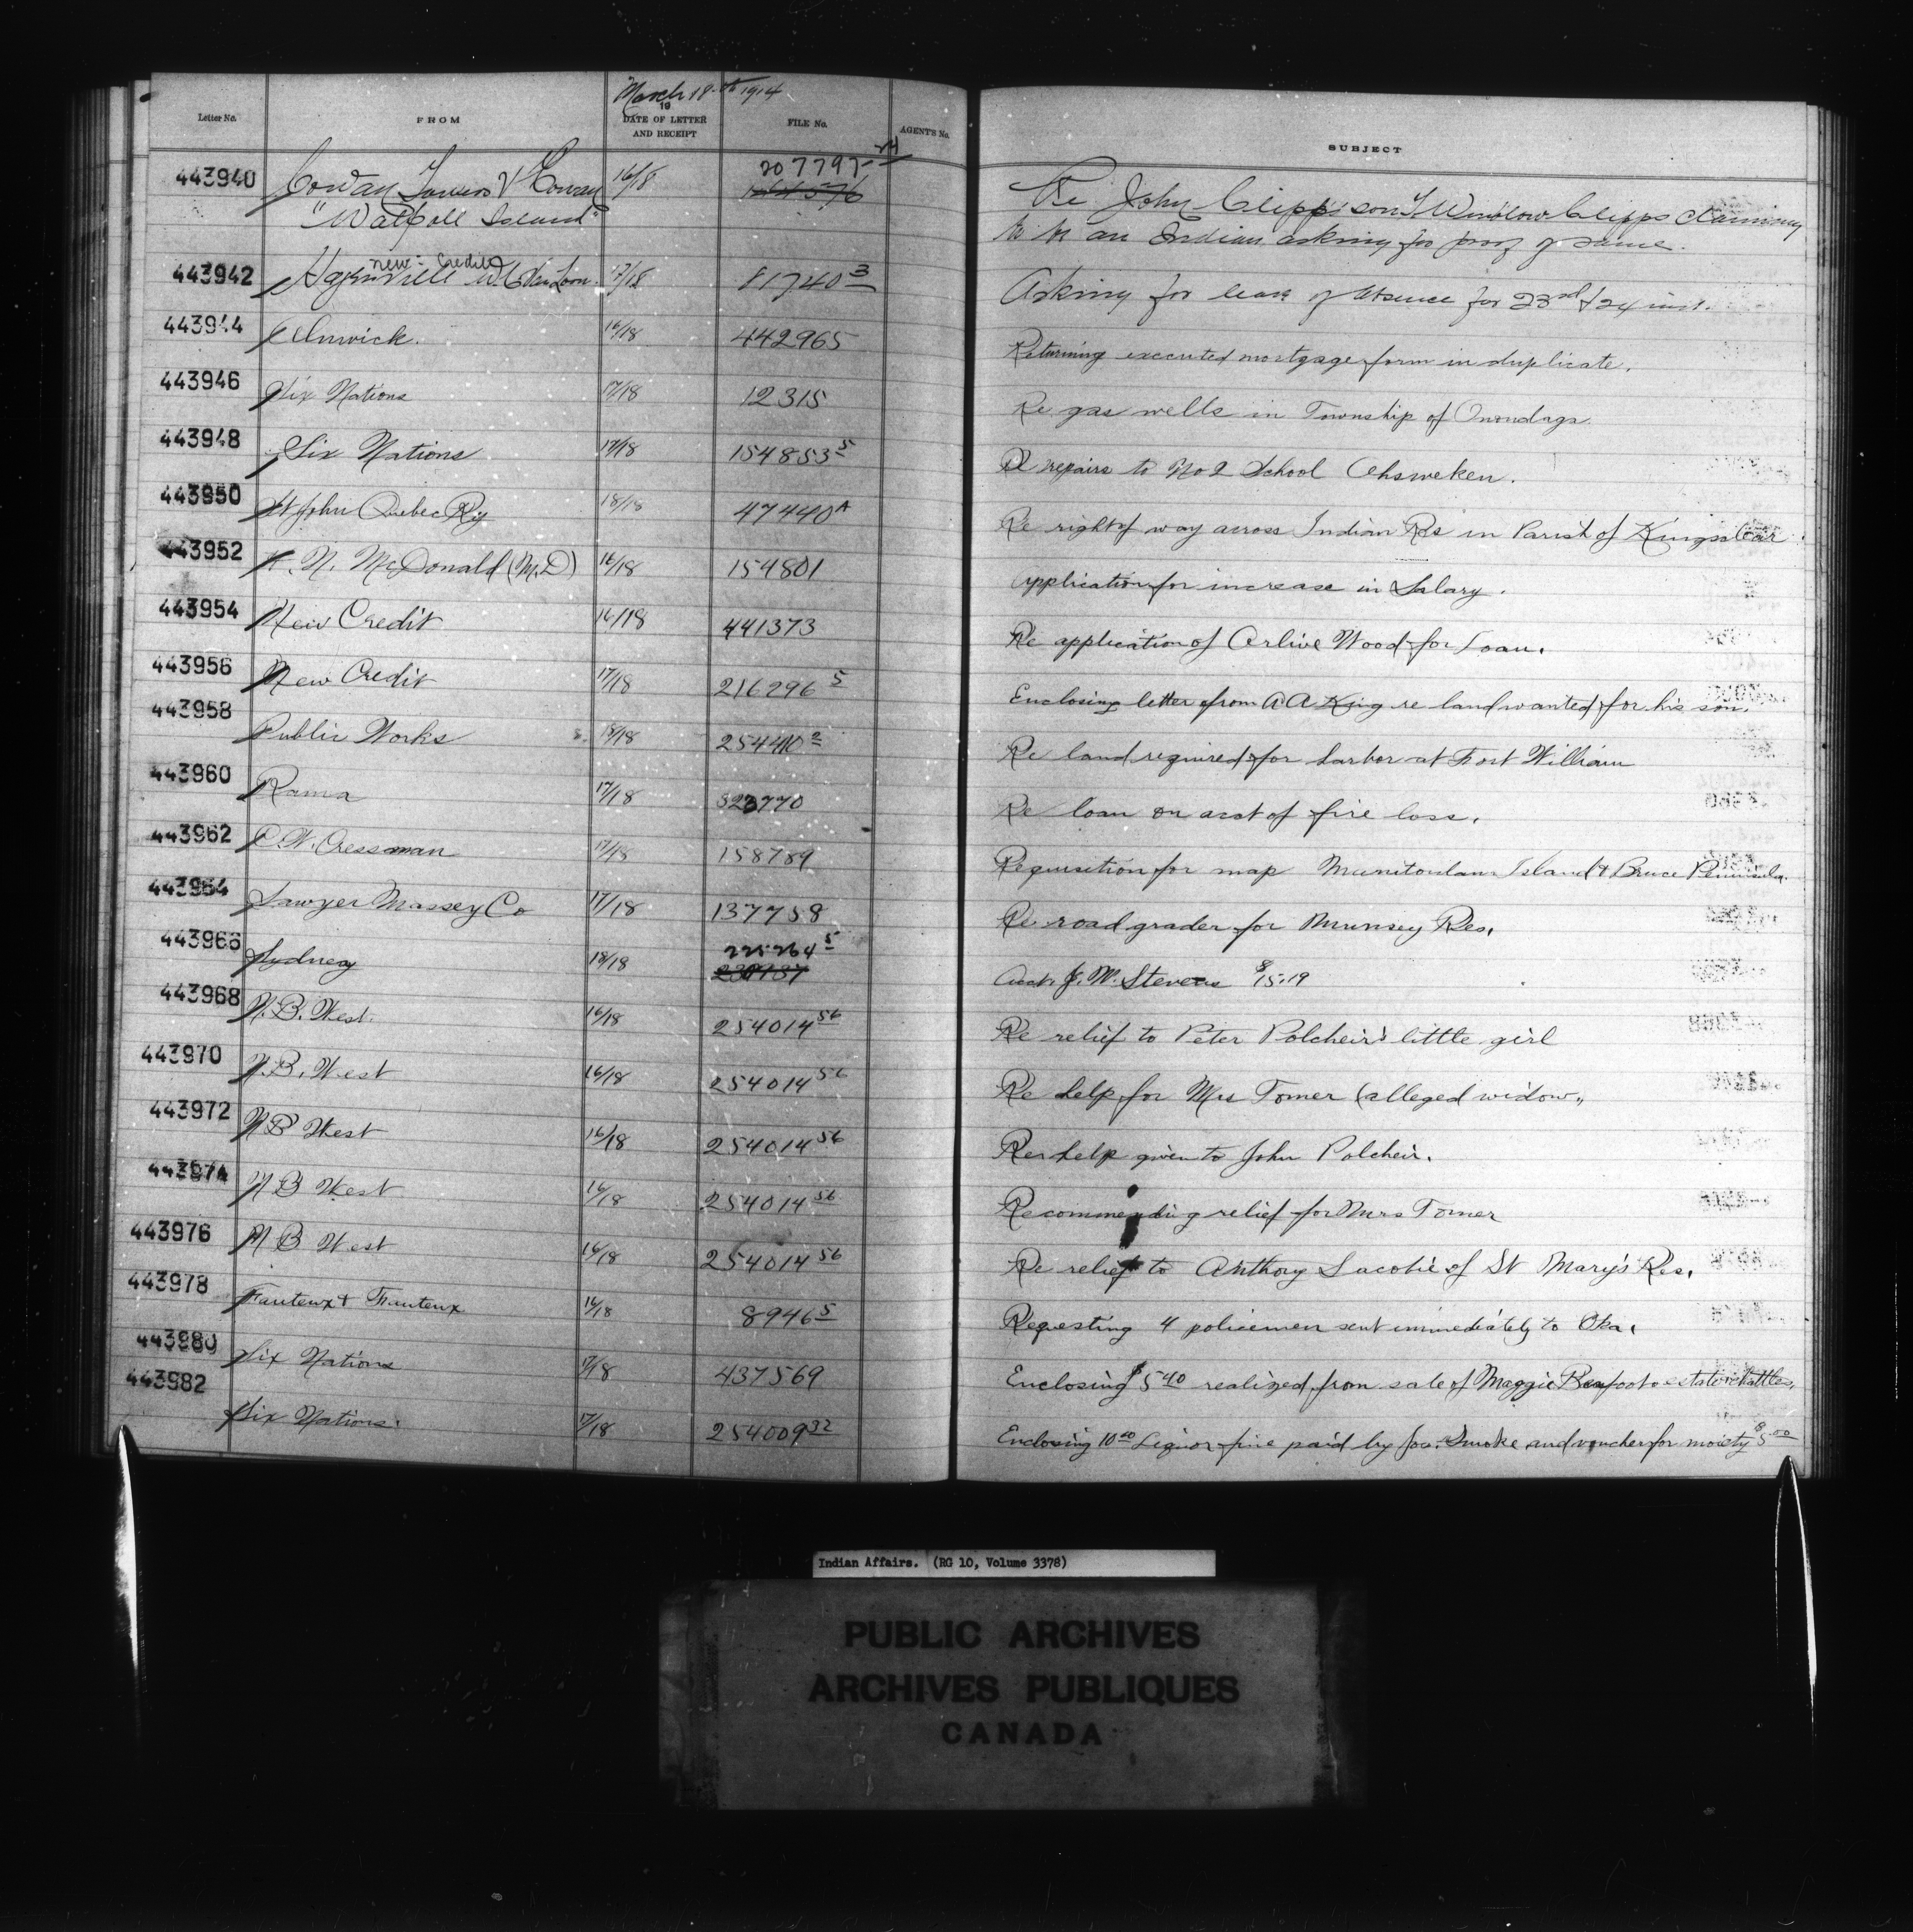 March 18th 1914
Letter No. FROM 19 DATE OF LETTER AND RECEIPT FILE No. AGENT'S No. SUBJECT
443940 Cowan Towers & Cowan 16/18 207797-24 164576 Re John Clipp's son Winslow Clipps claiming
"Walpole Island" to be an Indian asking for proof of same.
443942 Hagersville New Credit W.C. Van Loon 17/18 81740 3 Asking for leave of absence for 23rd & 24 inst.
443944 Alnwick. 16/18 442965 Returning executed mortgage form in duplicate.
443946 Six Nations 17/18 12315 Re gas wells in Township of Onondaga
443948 Six Nations 17/18 154853 5 Re repairs to No 2 School Ohsweken.
443950 St John Quebec Ry 18/18 47440A Re right of way across Indian Res in Parish of Kingsclear.
443952 N. McDonald (M.D) 16/18 154801 Application for increase in Salary.
443954 New Credit 16/18 441373 Re application of Arlive Wood for Loan.
443956 New Credit 17/18 216296 5 Enclosing letter from A A King re land wanted for his son.
443958 Public Works 18/18 254410 2 Re land required for harbor at Fort William
443960 Rama 17/18 323770 Re loan on acct of fire loss.
443962 C.W. Cressman 17/18 158789 Requisition for map Manitoulan Island & Bruce Peninsula.
443964 Sawyer Massey Co 17/18 137758 Re road grader for Munsey Res.
443966 Sydney 18/18 225264 5 Acct. J. W. Stevens $15.19
443968 N.B. West. 16/18 254014 56 Re relief to Peter Polcheir's little girl
443970 N.B. West 16/18 254014 56 Re help for Mrs Tomer (alleged widow"
443972 N B West 16/18 254014 56 Re help given to John Polcheir.
443974 N B West 16/18 254014 56 Recommending relief for Mrs Tomer
443976 N B West 16/18 254014 56 Re relief to Anthony Lacobie of St Mary's Res.
443978 Fauteux & Fauteux 16/18 8946 5 Requesting 4 policemen sent immediately to Oka.
443980 Six Nations 17/18 437569 Enclosing $5 40 realized from sale of Maggie Bearfoots estate chattles.
443982 Six Nations. 17/18 254009 32 Enclosing 10 00 Liquor fine paid by Jos. Smoke and voucher for moiety $5 00
Indian Affairs. (RG 10, Volume 3378)
PUBLIC ARCHIVES
ARCHIVES PUBLIQUES
CANADA